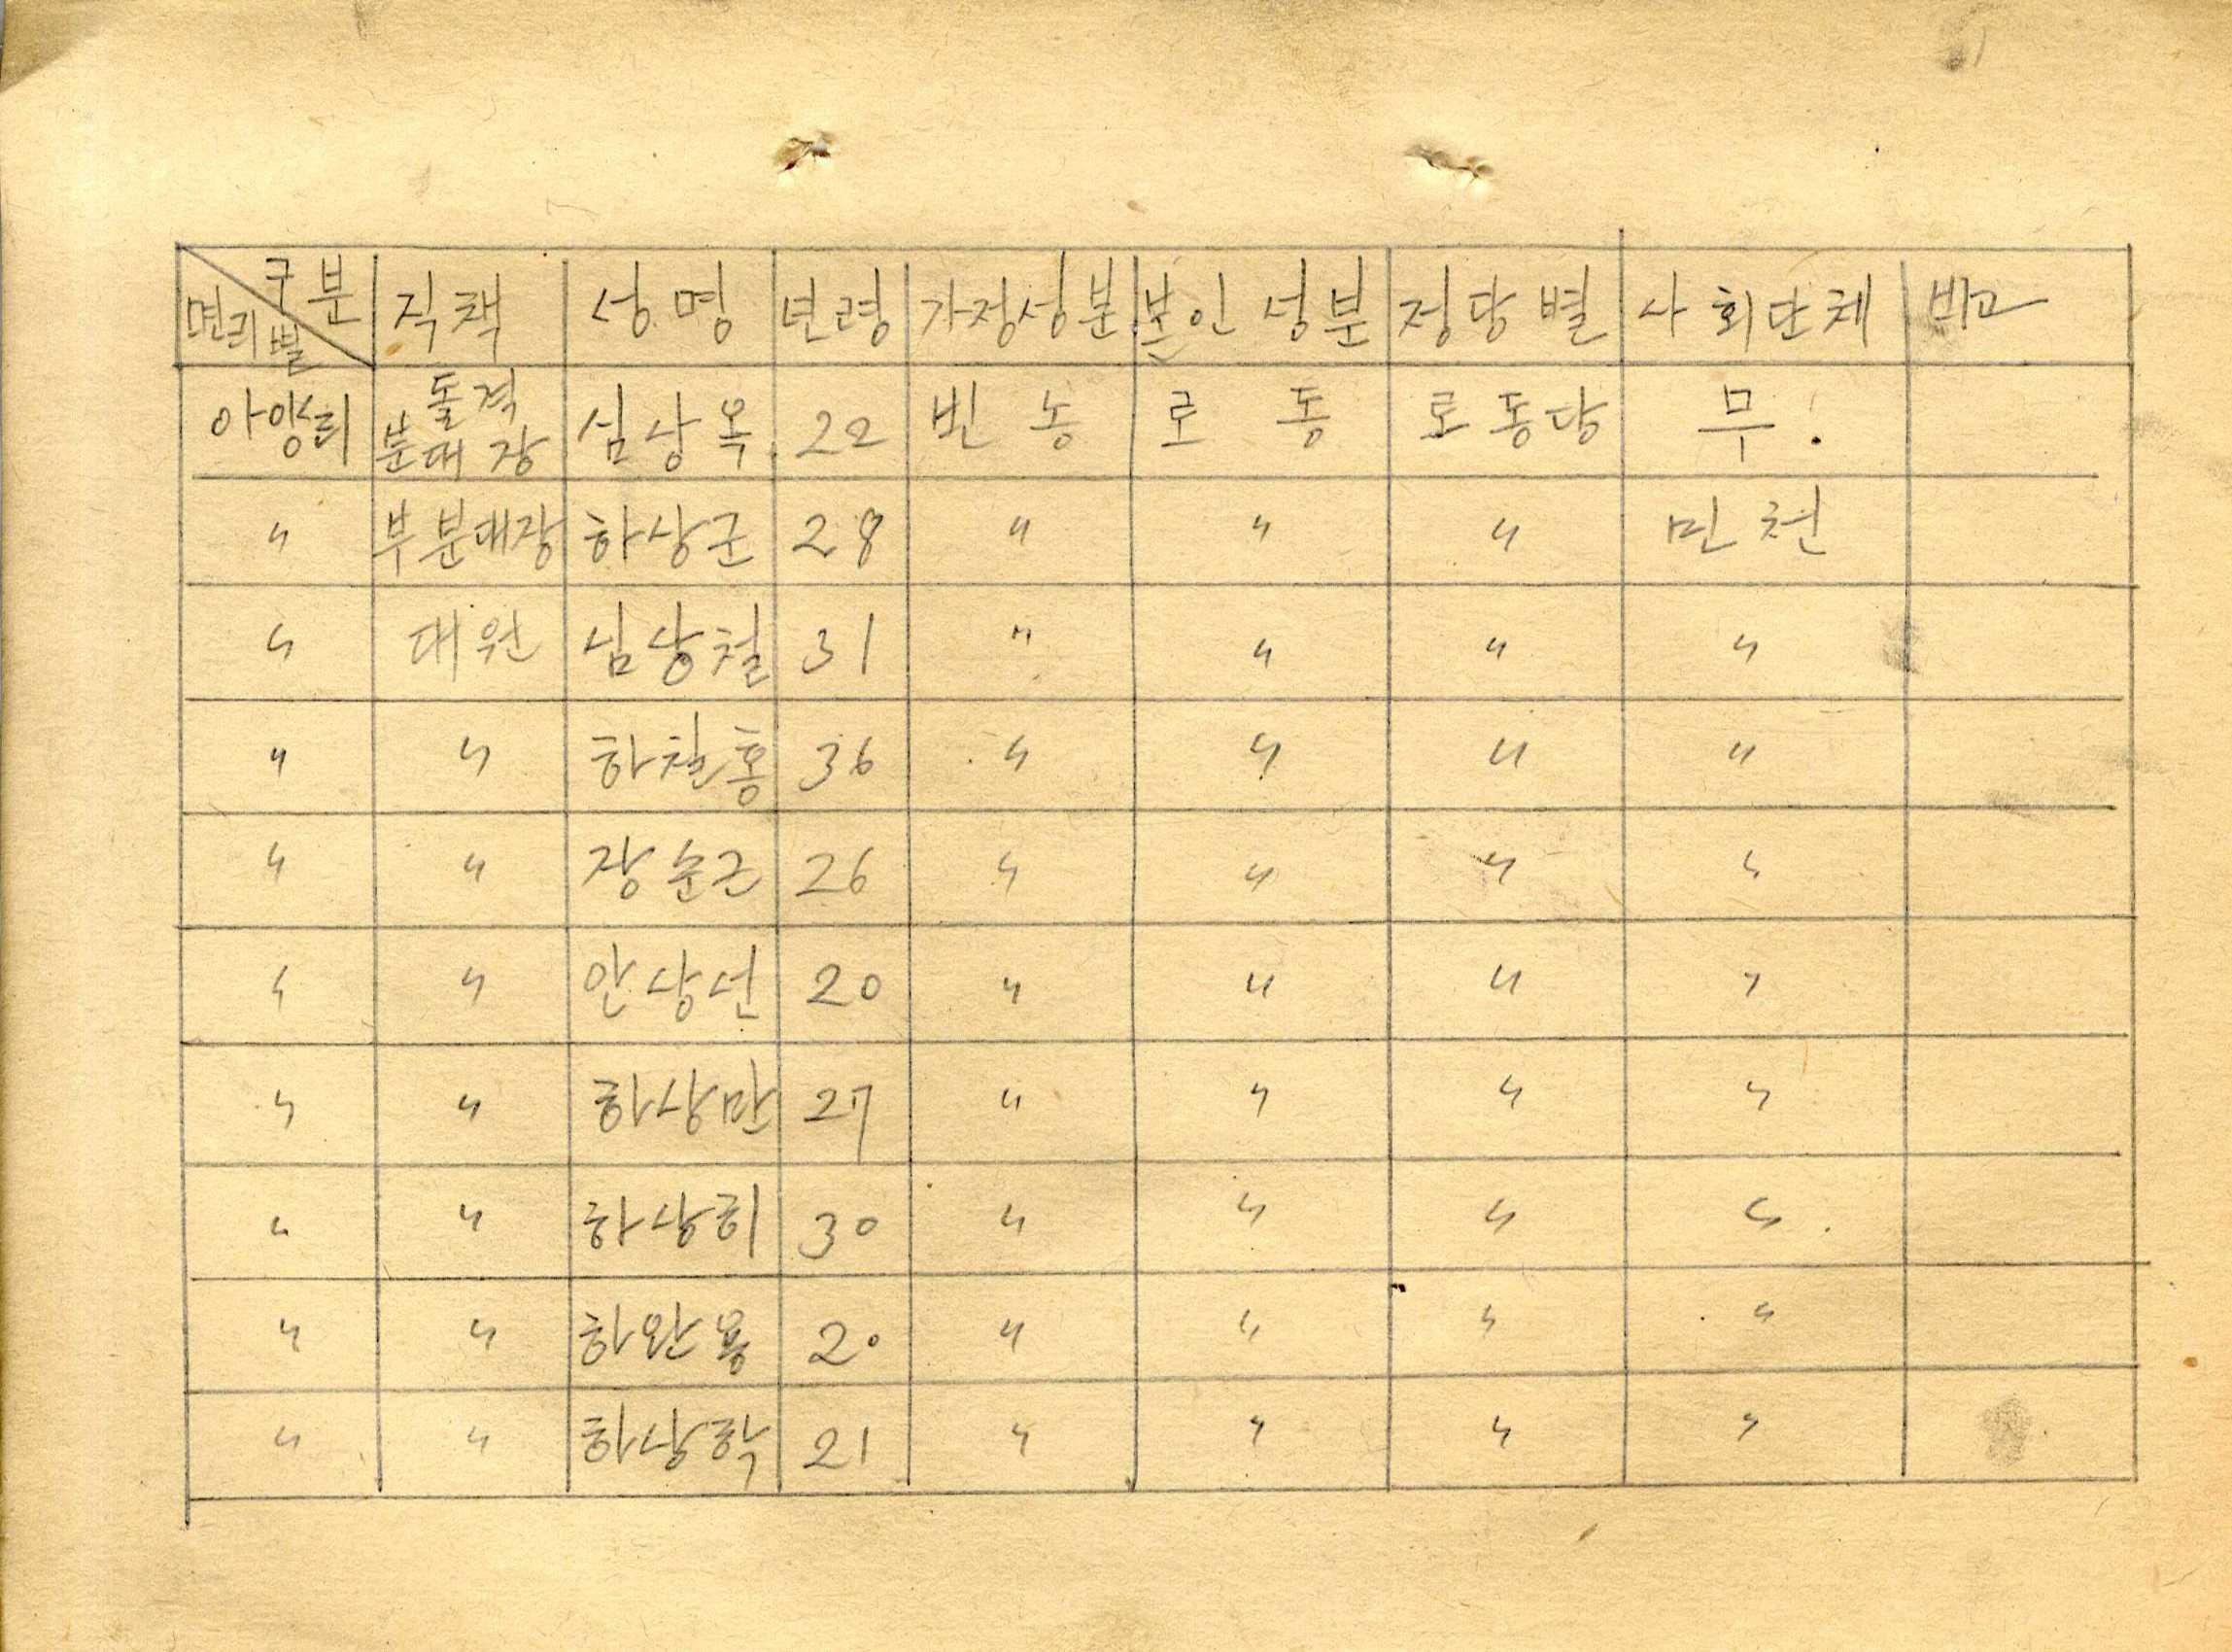 구분 면리별 직책 성명 년령 가정성분 본인성분 정당별 사회단체 비고
아양리 돌격분대장 심상옥 22 빈농 로동 로동당 무.
〃 부분대장 하상군 28 〃 〃 〃 민청
〃 대원 심상철 31 〃 〃 〃 〃
〃 〃 하철홍 36 〃 〃 〃 〃
〃 〃 장순근 26 〃 〃 〃 〃
〃 〃 안상선 20 〃 〃 〃 〃
〃 〃 하상만 27 〃 〃 〃 〃
〃 〃 하상히 30 〃 〃 〃 〃
〃 〃 하완용 20 〃 〃 〃 〃
〃 〃 하상락 21 〃 〃 〃 〃